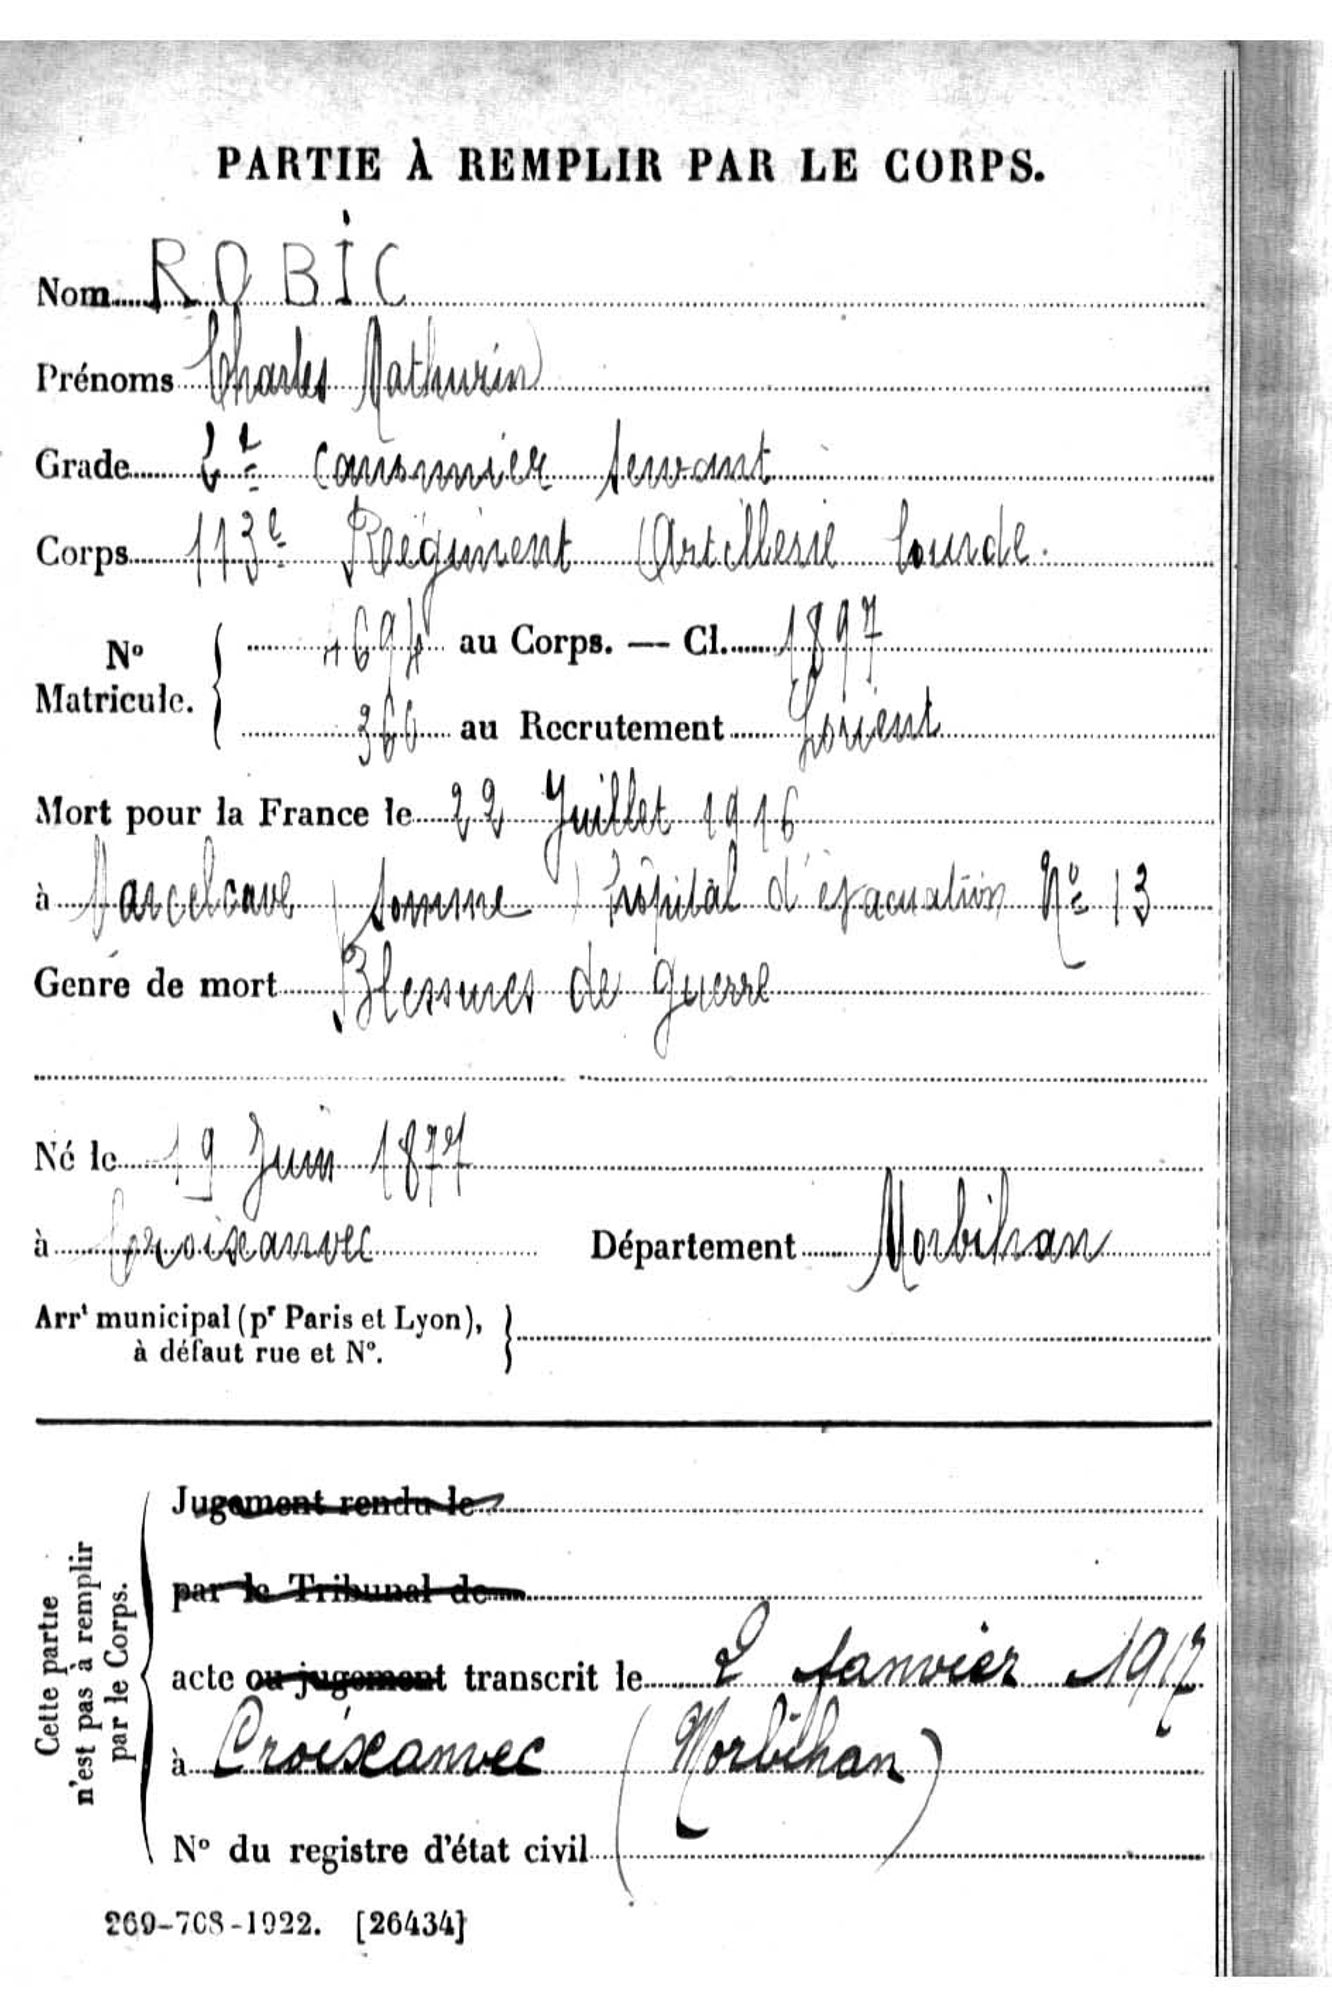 PARTIE À REMPLIR PAR LE CORPS.
Nom ROBIC
Prénoms Charles Mathurin
Grade 2e Canonnier Servant
Corps 113e Régiment Artillerie Lourde.
N° Matricule. { au Corps. — Cl. 1897
360 au Recrutement Lorient
Mort pour la France le 22 Juillet 1916
à Marcelcave (Somme) Hôpital d'évacuation N° 13
Genre de mort Blessures de guerre
Né le 19 Juin 1877
à Croixanvec Département Morbihan
Arrt municipal (pr Paris et Lyon), }
à défaut rue et N°.
Cette partie
n'est pas à remplir
par le Corps.
Jugement rendu le
par le Tribunal de
acte ou jugement transcrit le 2 Janvier 1917
à Croixanvec (Morbihan)
N° du registre d'état civil
269-708-1922. [26434]